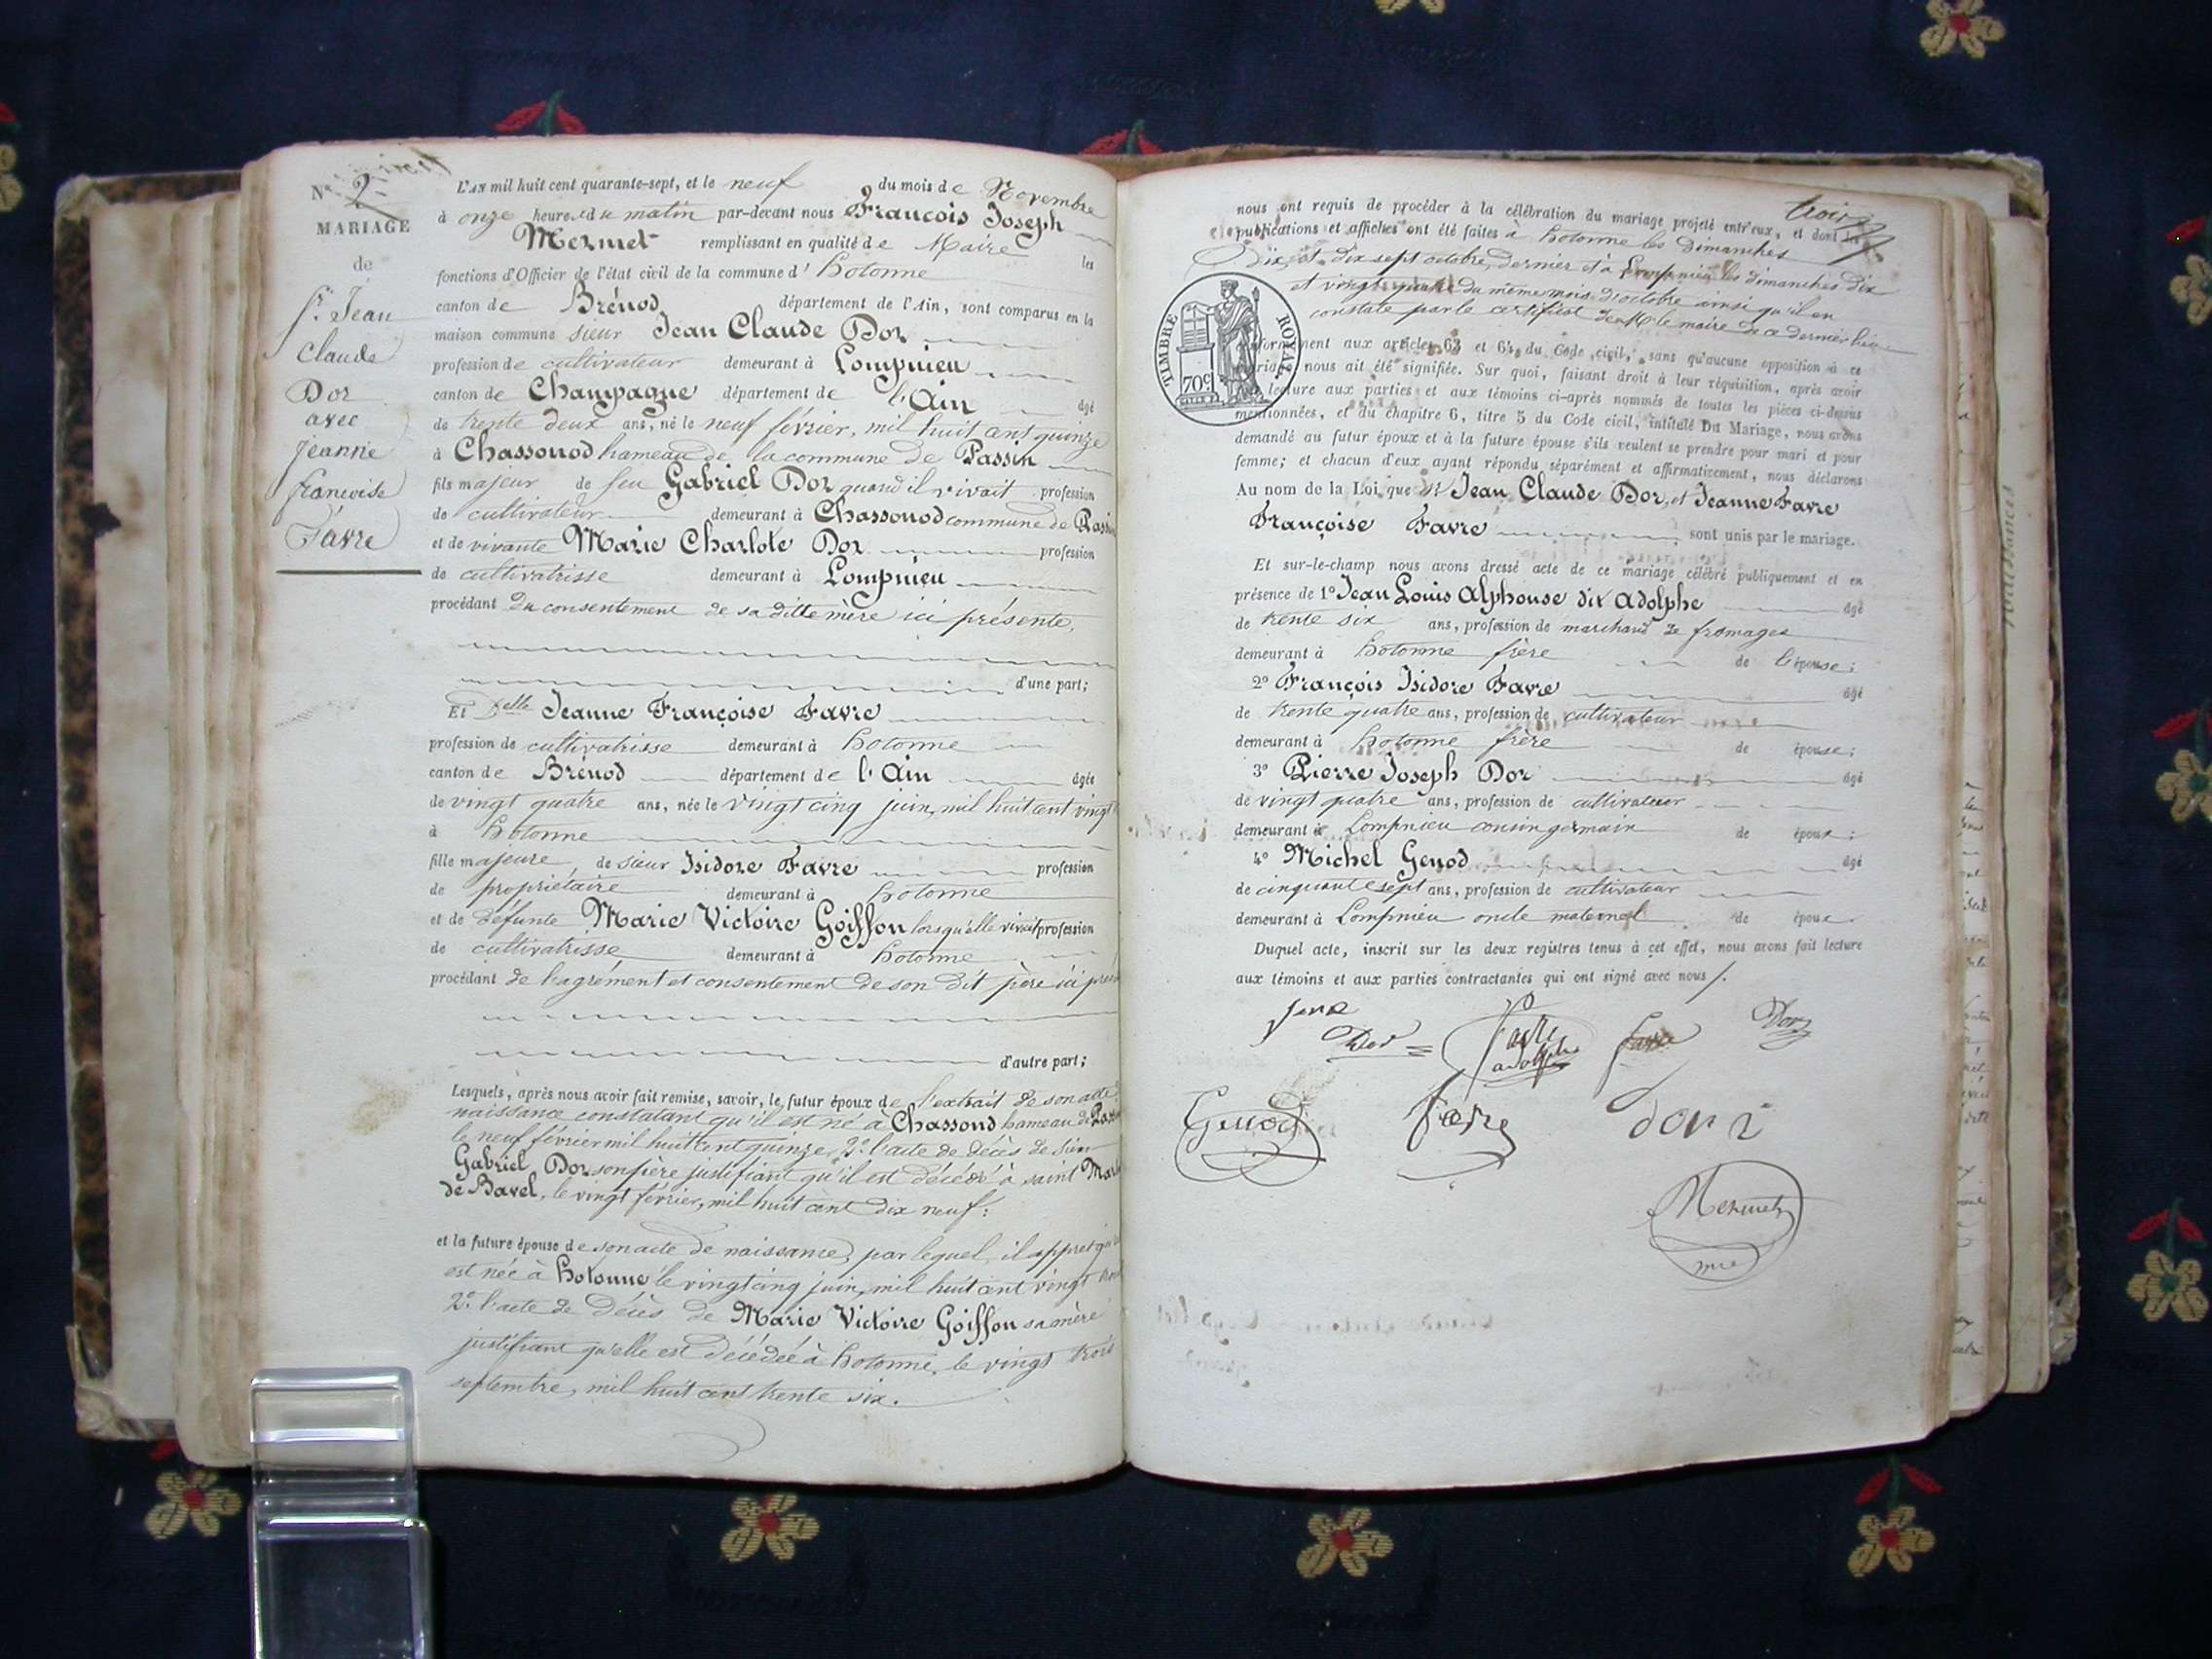 N° 2
MARIAGE
de
Sr. Jean
Claude
Dor
avec
Jeanne
francoise
Favre
L'AN mil huit cent quarante-sept, et le neuf du mois de Novembre
à onze heures du matin par-devant nous François Joseph
Mermet remplissant en qualité de Maire les
fonctions d'Officier de l'état civil de la commune d' hotonne
canton de Brénod département de l'Ain, sont comparus en la
maison commune sieur Jean Claude Dor
profession de cultivateur demeurant à Lompnieu
canton de Champagne département de l'Ain âgé
de trente deux ans, né le neuf février, mil huit cent quinze
à Chassonod hameau de la commune de Passin
fils majeur de feu Gabriel Dor quand il vivait profession
de cultivateur demeurant à Chassonod commune de Passin
et de vivante Marie Charlote Dor profession
de cultivatrisse demeurant à Lompnieu
procédant du consentement de sa ditte mère ici présente,
d'une part;
Et Delle Jeanne Françoise Favre
profession de cultivatrisse demeurant à hotonne
canton de Brénod département de l'Ain âgée
de vingt quatre ans, née le vingt cinq juin, mil huit cent vingt
à hotonne
fille majeure, de sieur Isidore Favre profession
de propriétaire demeurant à hotonne
et de défunte Marie Victoire Goiffon lorsqu'elle vivait profession
de cultivatrisse demeurant à hotonne
procédant de l'agrément et consentement de son dit père ici
d'autre part;
Lesquels, après nous avoir fait remise, savoir, le futur époux de l'extrait de son acte
naissance constatant qu'il est né à Chassonod hameau de
le neuf février mil huit cent quinze, 2° l'acte de décès de sieur
Gabriel Dor son père justifiant qu'il est décédé à saint
de Bavel, le vingt février, mil huit cent dix neuf:
et la future épouse de son acte de naissance, par lequel il appert
est née à hotonne le vingt cinq juin, mil huit cent vingt trois
2° l'acte de décès de Marie Victoire Goiffon sa mère
justifiant qu'elle est décédée à hotonne, le vingt trois
septembre, mil huit cent trente six.
trois
nous ont requis de procéder à la célébration du mariage projeté entr'eux, et dont les
publications et affiches ont été faites à hotonne les Dimanches
Dix, et dix sept octobre, dernier et à Lompnieu les dimanches dix
et vingt quatre du même mois d'octobre ainsi qu'il en
constate par le certificat de Mr le maire de ce dernier lieu
TIMBRE ROYAL
70c
conformément aux articles 63 et 64 du Code civil, sans qu'aucune opposition à ce
mariage nous ait été signifiée. Sur quoi, faisant droit à leur réquisition, après avoir
lecture aux parties et aux témoins ci-après nommés de toutes les pièces ci-dessus
mentionnées, et du chapitre 6, titre 5 du Code civil, intitulé Du Mariage, nous avons
demandé au futur époux et à la future épouse s'ils veulent se prendre pour mari et pour
femme; et chacun d'eux ayant répondu séparément et affirmativement, nous déclarons
Au nom de la Loi, que Sr Jean Claude Dor, et Jeanne Favre
Françoise Favre sont unis par le mariage.
Et sur-le-champ nous avons dressé acte de ce mariage célébré publiquement et en
présence de 1° Jean Louis Alphonse dit Adolphe âgé
de trente six ans, profession de marchand de fromages
demeurant à hotonne frère de l'épouse;
2° François Isidore Favre âgé
de trente quatre ans, profession de cultivateur
demeurant à hotonne frère de épouse;
3° Pierre Joseph Dor âgé
de vingt quatre ans, profession de cultivateur
demeurant à Lompnieu cousin germain de époux;
4° Michel Genod âgé
de cinquante sept ans, profession de cultivateur
demeurant à Lompnieu oncle maternel de époux
Duquel acte, inscrit sur les deux registres tenus à cet effet, nous avons fait lecture
aux témoins et aux parties contractantes qui ont signé avec nous /.
Dor
Favre
adolphe
favre
Dor
Genod
favre
dor
Mermet
mre